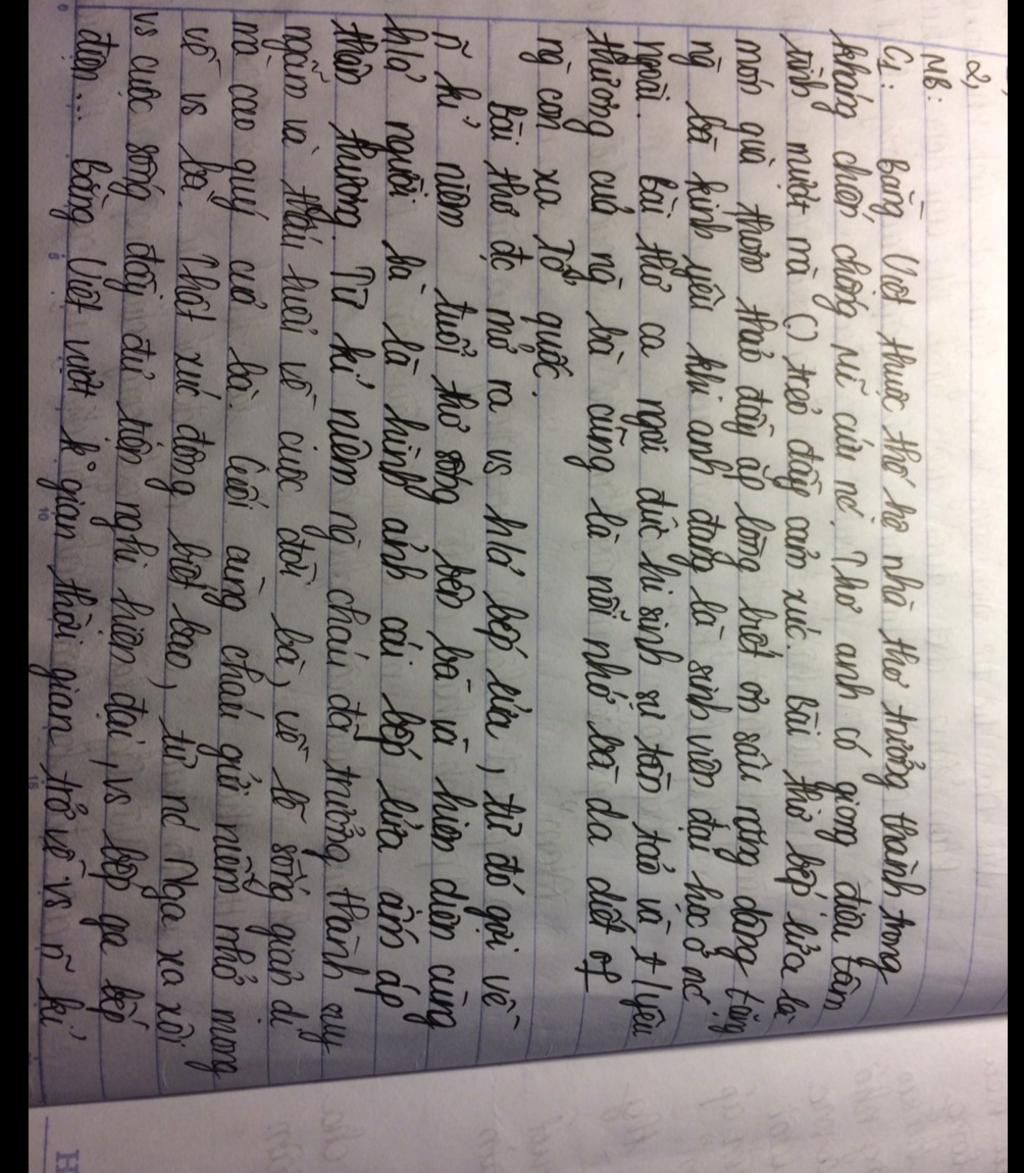 2,
MB:
C1: Bằng Việt thuộc thế hệ nhà thơ trưởng thành trong
kháng chiến chống Mĩ cứu nc. Thơ anh có giọng điệu tâm
tình mượt mà () trẻo đầy cảm xúc. Bài thơ bếp lửa là
món quà thơm thảo đầy ắp lòng biết ơn sâu nặng dâng tặng
ng bà kính yêu khi anh đang là sinh viên đại học ở nc
ngoài. Bài thơ ca ngợi đức hi sinh sự tần tảo và t/yêu
thương của ng bà cũng là nỗi nhớ bà da diết of
ng con xa Tổ quốc.
Bài thơ đc mở ra vs h/ả bếp lửa, từ đó gợi về
n~ kỉ niệm tuổi thơ sống bên bà và hiện diện cùng
h/ả người bà là hình ảnh cái bếp lửa ấm áp
thân thương. Từ kỉ niệm ng cháu đã trưởng thành suy
ngẫm và thấu hiểu về cuộc đời bà, về lẽ sống giản dị
mà cao quý của bà. Cuối cùng cháu gửi niềm nhớ mong
về vs bà. Thật xúc động biết bao, từ nc Nga xa xôi
vs cuộc sống đầy đủ tiện nghi hiện đại, vs bếp ga bếp
điện... Bằng Việt vượt k° gian thời gian trở về vs n~ kỉ
H